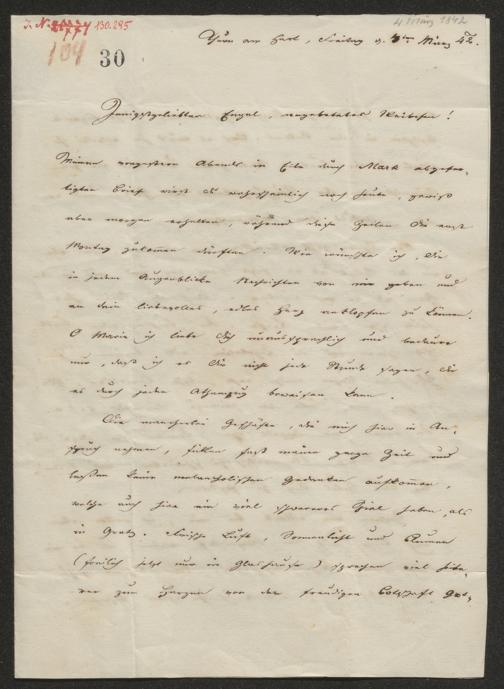 J. N. 130.295
4 März 1842
104
30
Thurn am Hart, Freitag d. 4ten März 42.
Innigstgeliebter Engel, angebetetes Weibchen!
Meinen vorgestern Abends in Eile durch Mark abgefer-
tigten Brief wirst du wahrscheinlich noch heute, gewiß
aber morgen erhalten, während diese Zeilen Dir erst
Montag zukommen dürften. Wie wünschte ich, Dir
in jedem Augenblicke Nachrichten von mir geben und
an dein liebevolles, edles Herz anklopfen zu können.
O Marie ich liebe dich unaussprechlich und bedaure
nur, daß ich es Dir nicht jede Stunde sagen, dir
es durch jeden Athemzug beweisen kann.
Die mancherlei Geschäfte, die mich hier in An-
spruch nehmen, füllen fast meine ganze Zeit und
lassen keine melancholischen Gedanken aufkommen,
welche auch hier ein viel schwereres Spiel haben, als
in Gratz. Frische Luft, Sonnenlicht und Blumen
(freilich jetzt nur im Glashause) sprechen viel hei-
rer zum Herzen von der freudigen Botschaft Got-